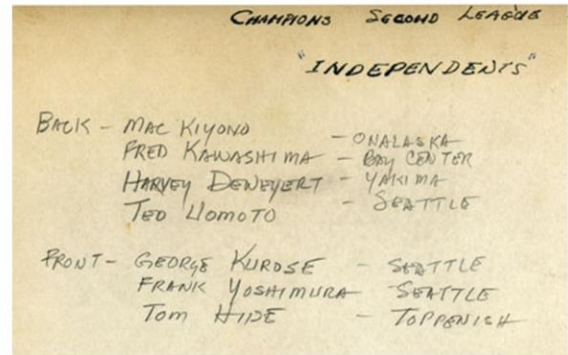 CHAMPIONS SECOND LEAGUE
"INDEPENDENTS"
BACK - MAC KIYONO - ONALASKA
FRED KAWASHIMA - BAY CENTER
HARVEY DENEYERT - YAKIMA
TED UOMOTO - SEATTLE
FRONT - GEORGE KUROSE - SEATTLE
FRANK YOSHIMURA SEATTLE
TOM HIDE - TOPPENISH